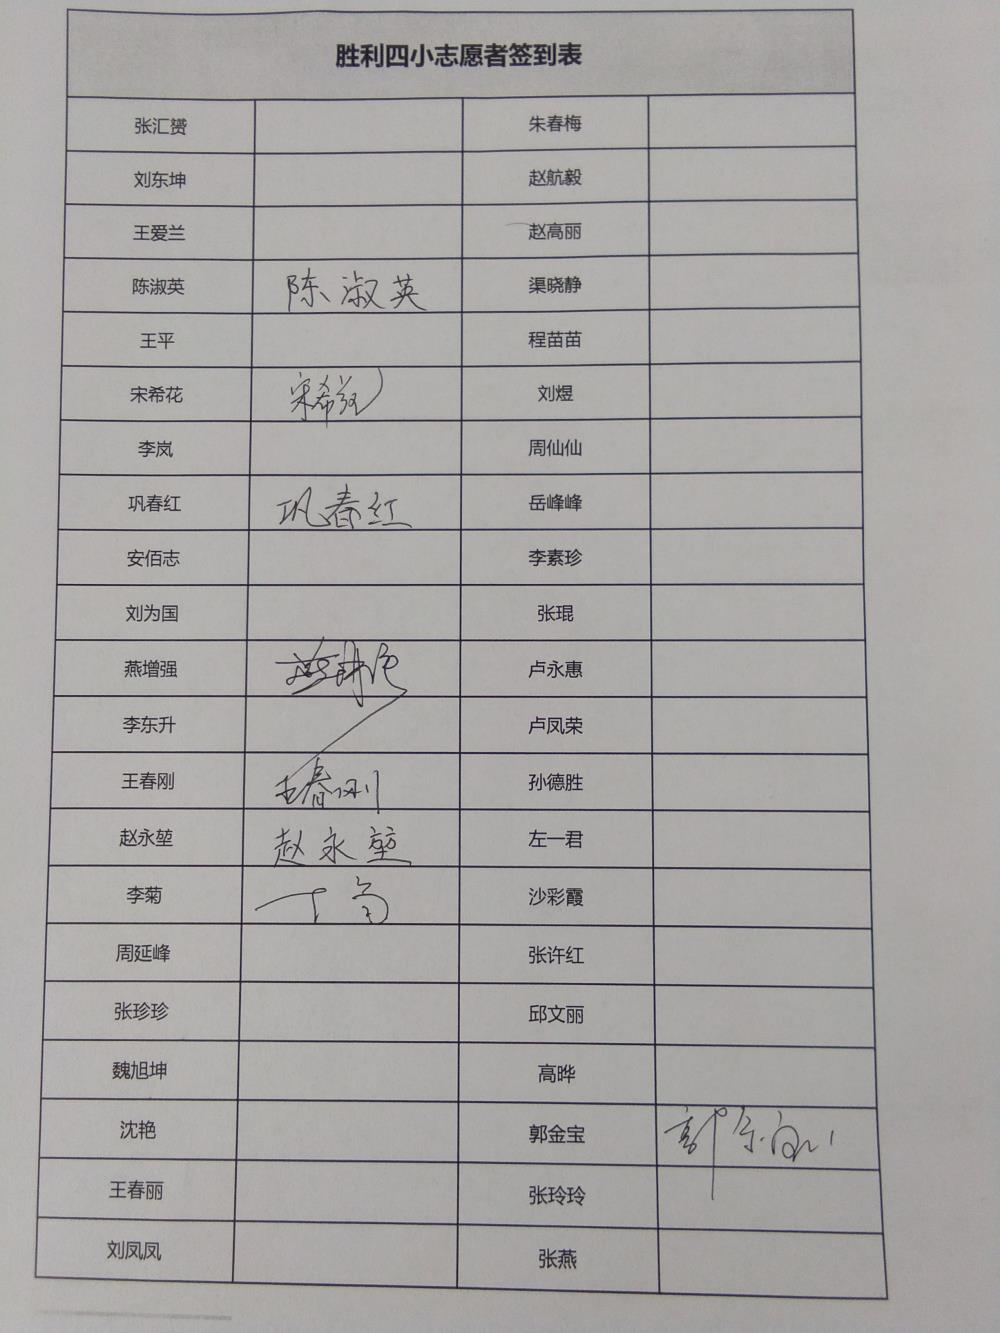 胜利四小志愿者签到表
张汇赟 朱春梅
刘东坤 赵航毅
王爱兰 赵高丽
陈淑英 陈淑英 渠晓静
王平 程苗苗
宋希花 宋希花 刘煜
李岚 周仙仙
巩春红 巩春红 岳峰峰
安佰志 李素珍
刘为国 张琨
燕增强 卢永惠
李东升 卢凤荣
王春刚 王春刚 孙德胜
赵永堃 赵永堃 左一君
李菊 沙彩霞
周延峰 张许红
张珍珍 邱文丽
魏旭坤 高晔
沈艳 郭金宝
王春丽 张玲玲
刘凤凤 张燕